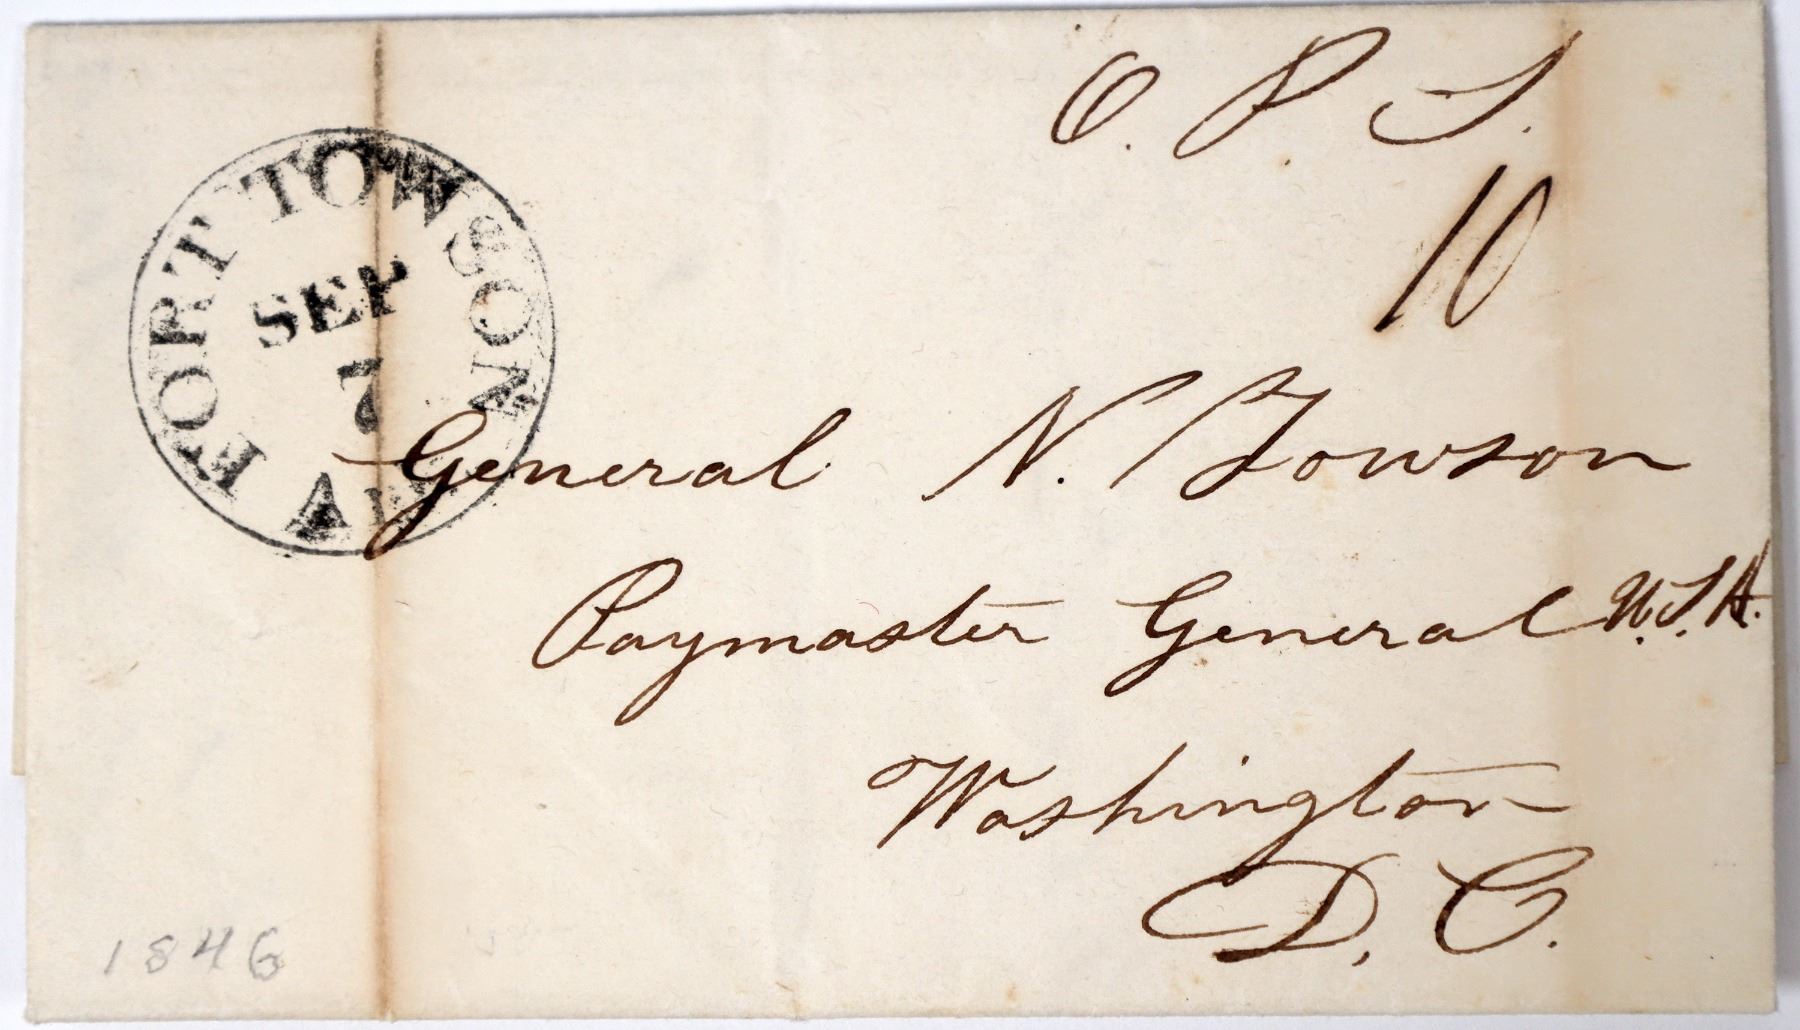 O. P. S.
10
FORT TOWSON
SEP
7
General N. Towson
Paymaster General U.S.A.
Washington
D. C.
1846